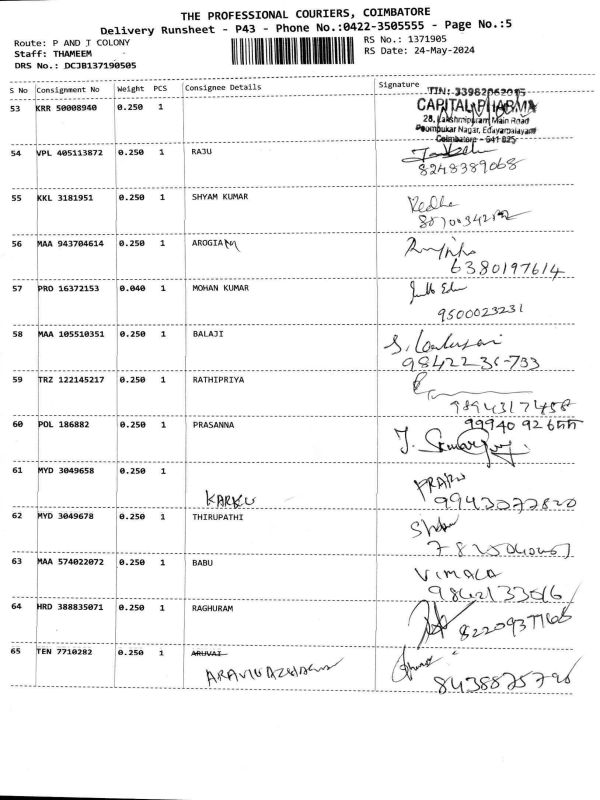 THE PROFESSIONAL COURIERS, COIMBATORE
Delivery Runsheet - P43 - Phone No.:0422-3505555 - Page No.:5
Route: P AND T COLONY RS No.: 1371905
Staff: THAMEEM RS Date: 24-May-2024
DRS No.: DCJB137190505
S No Consignment No Weight PCS Consignee Details Signature
TIN: 33982062015
53 KRR 50008940 0.250 1 CAPITAL PHARMA
28, Lakshmipuram Main Road
Poompukar Nagar, Edayarpalayam
Coimbatore - 641 025
54 VPL 405113872 0.250 1 RAJU
8248389068
55 KKL 3181951 0.250 1 SHYAM KUMAR Redha
56 MAA 943704614 0.250 1 AROGIA
6380197614
57 PRO 16372153 0.040 1 MOHAN KUMAR
9500023231
58 MAA 105510351 0.250 1 BALAJI
9842236-733
59 TRZ 122145217 0.250 1 RATHIPRIYA
9894317458
60 POL 186882 0.250 1 PRASANNA
61 MYD 3049658 0.250 1
KARKU PRABU
9943077820
62 MYD 3049678 0.250 1 THIRUPATHI
63 MAA 574022072 0.250 1 BABU VIMALA
9842133516
64 HRD 388835071 0.250 1 RAGHURAM
8220937768
65 TEN 7710282 0.250 1 ARUVAI
8438875796